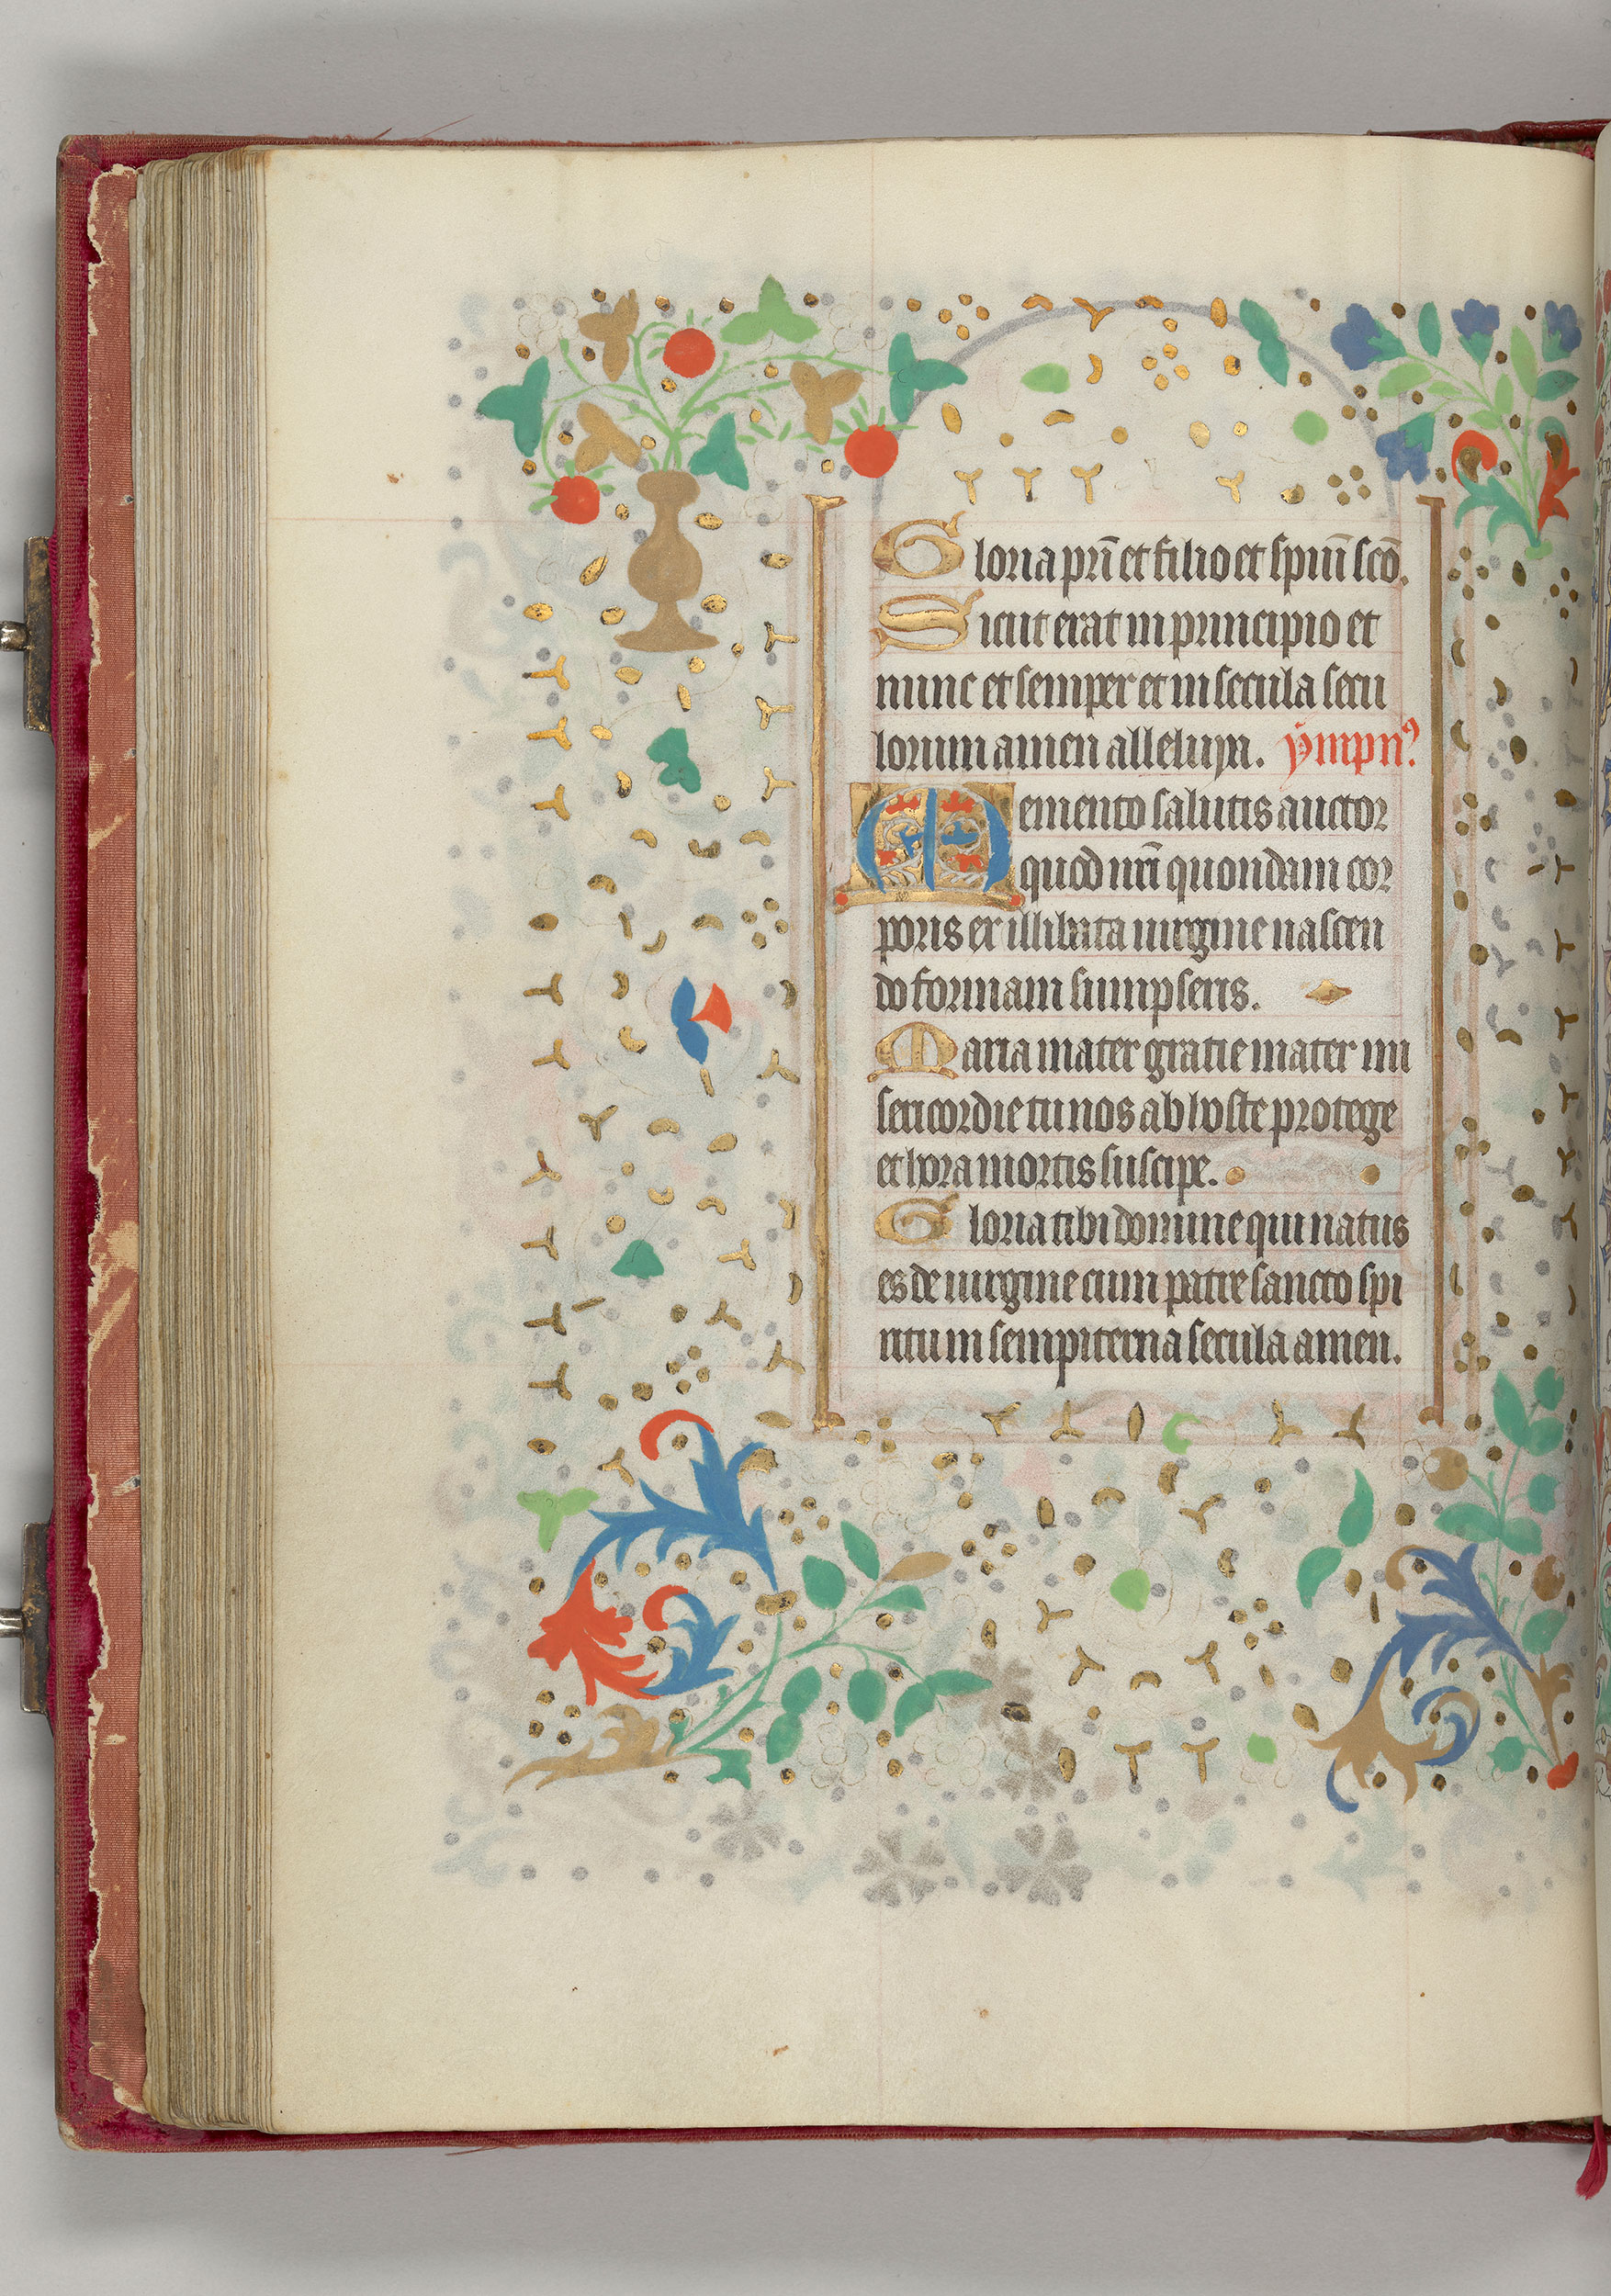 Gloria pr̄i et filio et spiūi scō.
Sicut erat in principio et
nunc et semper et in secula secu
lorum amen alleluya. ympnꝰ
Memento salutis auctor
quod nr̄i quondam cor
poris ex illibata uirgine nascen
do formam sumpseris.
Maria mater gratie mater mi
sericordie tu nos ab hoste protege
et hora mortis suscipe.
Gloria tibi domine qui natus
es de uirgine cum patre sancto spi
ritu in sempiterna secula amen.